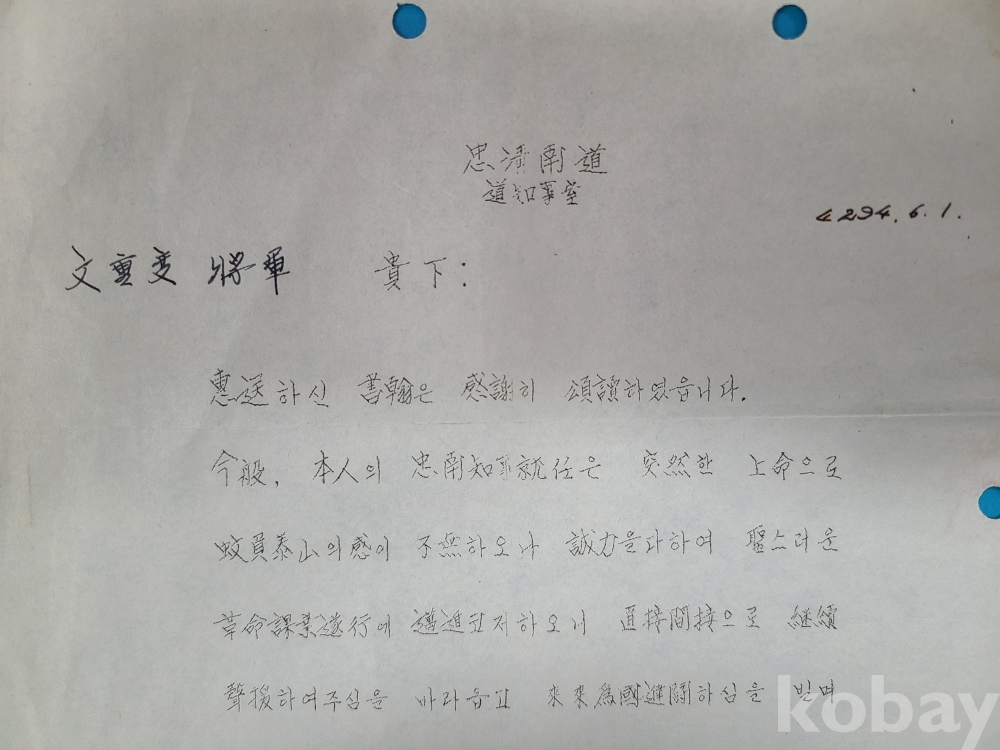 忠淸南道
道知事室
4294. 6. 1.
文重燮 將軍 貴下:
惠送하신 書翰은 感謝히 頌讀하였읍니다.
今般, 本人의 忠南知事就任은 突然한 上命으로
蚊負泰山의感이 不無하오나 誠力을다하여 聖스러운
革命課業遂行에 邁進코저하오니 直接間接으로 継續
聲援하여주심을 바라옵고 來來爲國進鬪하심을 빌며
kobay